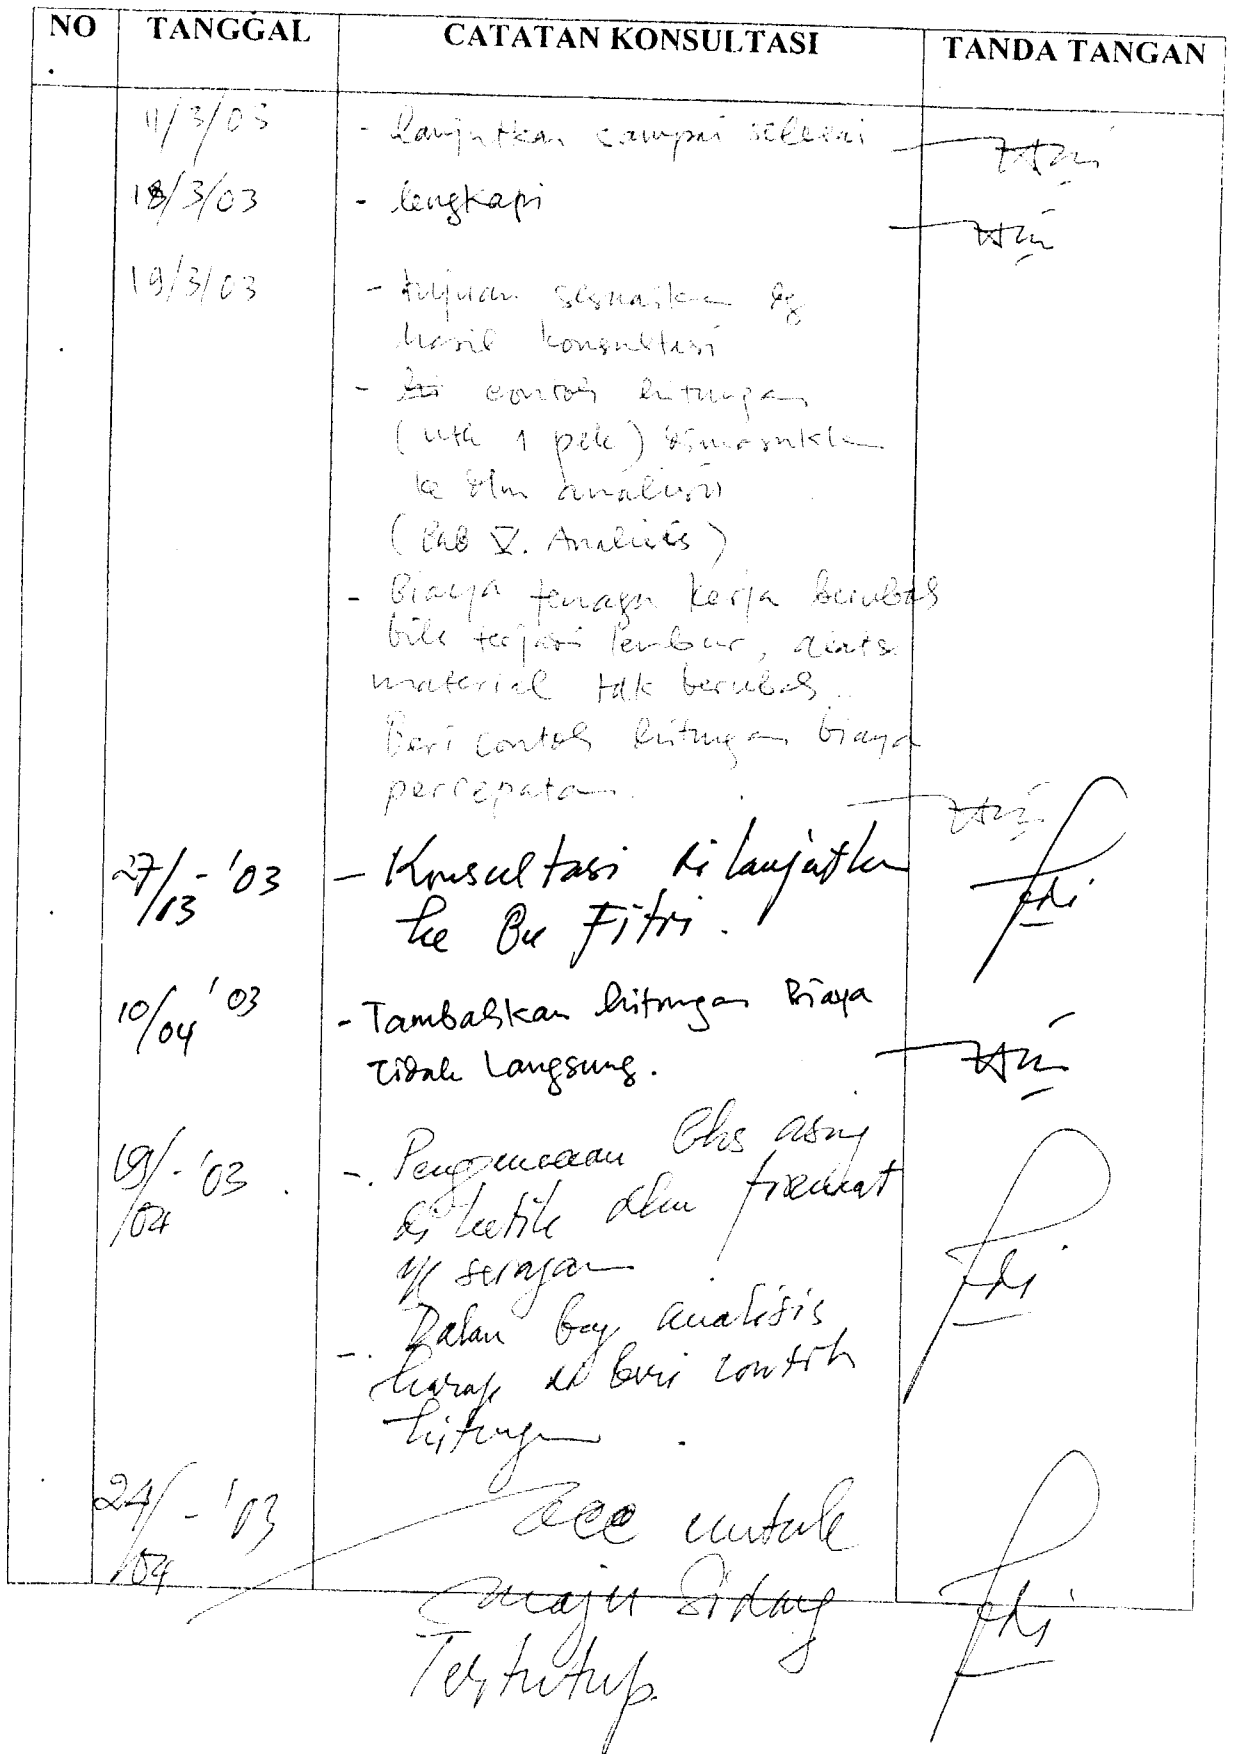 NO TANGGAL CATATAN KONSULTASI TANDA TANGAN
.
11/3/03 - Lanjutkan sampai selesai
18/3/03 - lengkapi
19/3/03 - tujuan sesuaikan dg
hasil konsultasi
- contoh hitungan
(utk 1 pek) dimasukkan
ke dlm analisis
(Bab V. Analisis)
- Biaya tenaga kerja berubah
bila terjadi lembur, alat &
material tdk berubah.
Beri contoh hitungan biaya
percepatan.
27/03 - '03 - Konsultasi dilanjutkan
ke Bu Fitri.
10/04 '03 - Tambahkan hitungan Biaya
tidak langsung.
19/04 - '03. -. Penggunaan Bhs asing
di ketik dlm format
yg seragam
-. Dalam bag analisis
harap di beri contoh
hitungan.
24/04 - '03 acc untuk
maju Sidang
Tertutup.